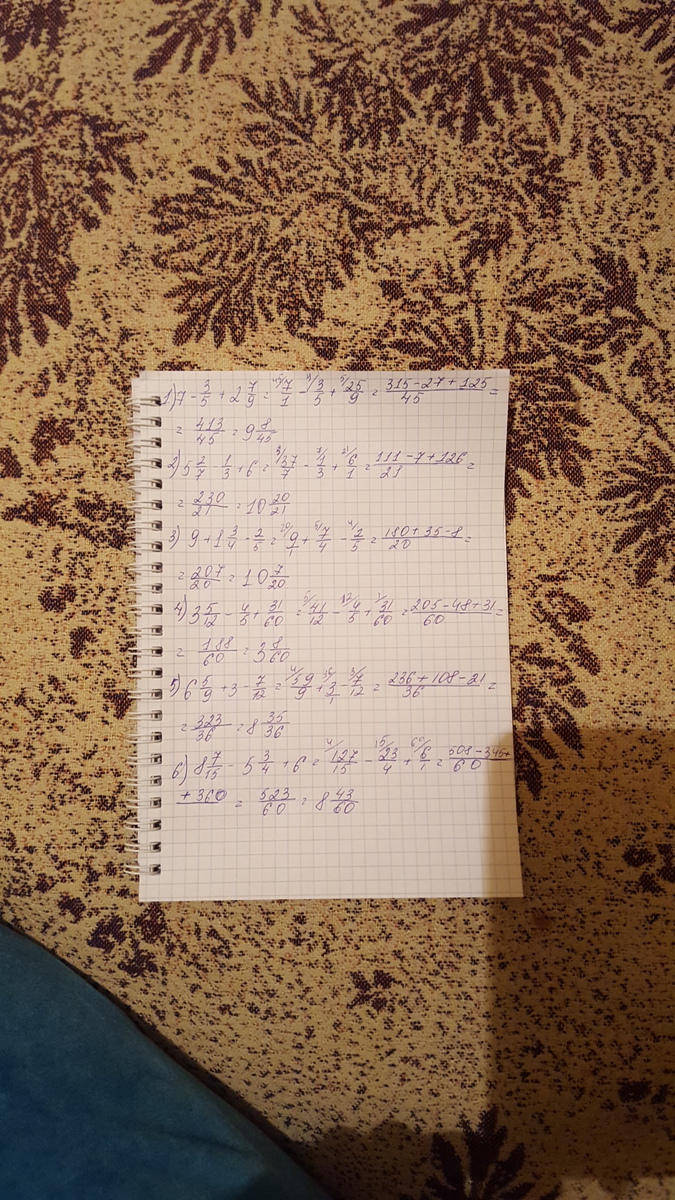 1) 7 - 3/5 + 2 7/9 = 45/ 7/1 - 9/ 3/5 + 5/ 25/9 = 315-27+125/45 =
= 413/45 = 9 8/45
2) 5 2/7 - 1/3 + 6 = 3/ 37/7 - 7/ 1/3 + 21/ 6/1 = 111-7+126/21 =
= 230/21 = 10 20/21
3) 9 + 1 3/4 - 2/5 = 20/ 9/1 + 5/ 7/4 - 4/ 2/5 = 180+35-8/20 =
= 207/20 = 10 7/20
4) 3 5/12 - 4/5 + 31/60 = 5/ 41/12 - 12/ 4/5 + 1/ 31/60 = 205-48+31/60 =
= 188/60 = 3 8/60
5) 6 5/9 + 3 - 7/12 = 4/ 59/9 + 36/ 3/1 - 3/ 7/12 = 236+108-21/36 =
= 323/36 = 8 35/36
6) 8 7/15 - 5 3/4 + 6 = 4/ 127/15 - 15/ 23/4 + 60/ 6/1 = 508-345+/60
+360 = 523/60 = 8 43/60